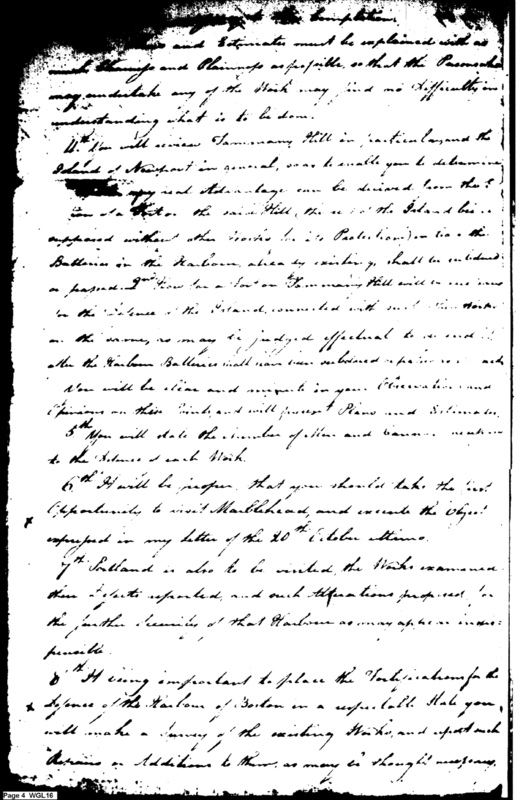 to the Completion.
and Estimates must be explained with as
much Clearness and Plainness as possible, so that the Persons who
may undertake any of the Work may find no difficulty in
understanding what is to be done.
4th You will review Tammany Hill in particular, and the
Island of Newport in general, so as to enable you to determine
any real Advantage can be derived from the
of a Fort on the said Hill, the rest of the Island being
supposed without other Works for its Protection
Batteries in the Harbour, already existing, shall be
or passed. 2nd How far a Fort on Tammany Hill will
for the Defence of the Island, connected with such other Works
on the same, as may be judged effectual to defend it
after the Harbour Batteries shall have been
You will be clear and minute in your Observations and
Opinions on these Points, and will present Plans and Estimates.
5th You will state the Number of Men and Cannon
to the Defence of each Work.
6th It will be proper, that you should take the first
Opportunity to visit Marblehead, and execute the Object
expressed in my Letter of the 20th October ultimo.
7th Portland is also to be visited, the Works examined
their Defects reported, and such Alterations proposed for
the further Security of that Harbour as may appear indis=
pensible.
8th It being important to place the Fortifications for the
Defence of the Harbour of Boston in a respectable State you
will make a Survey of the existing Works, and report such
Repairs or Additions to them, as may be thought necessary.
Page 4 WGL16